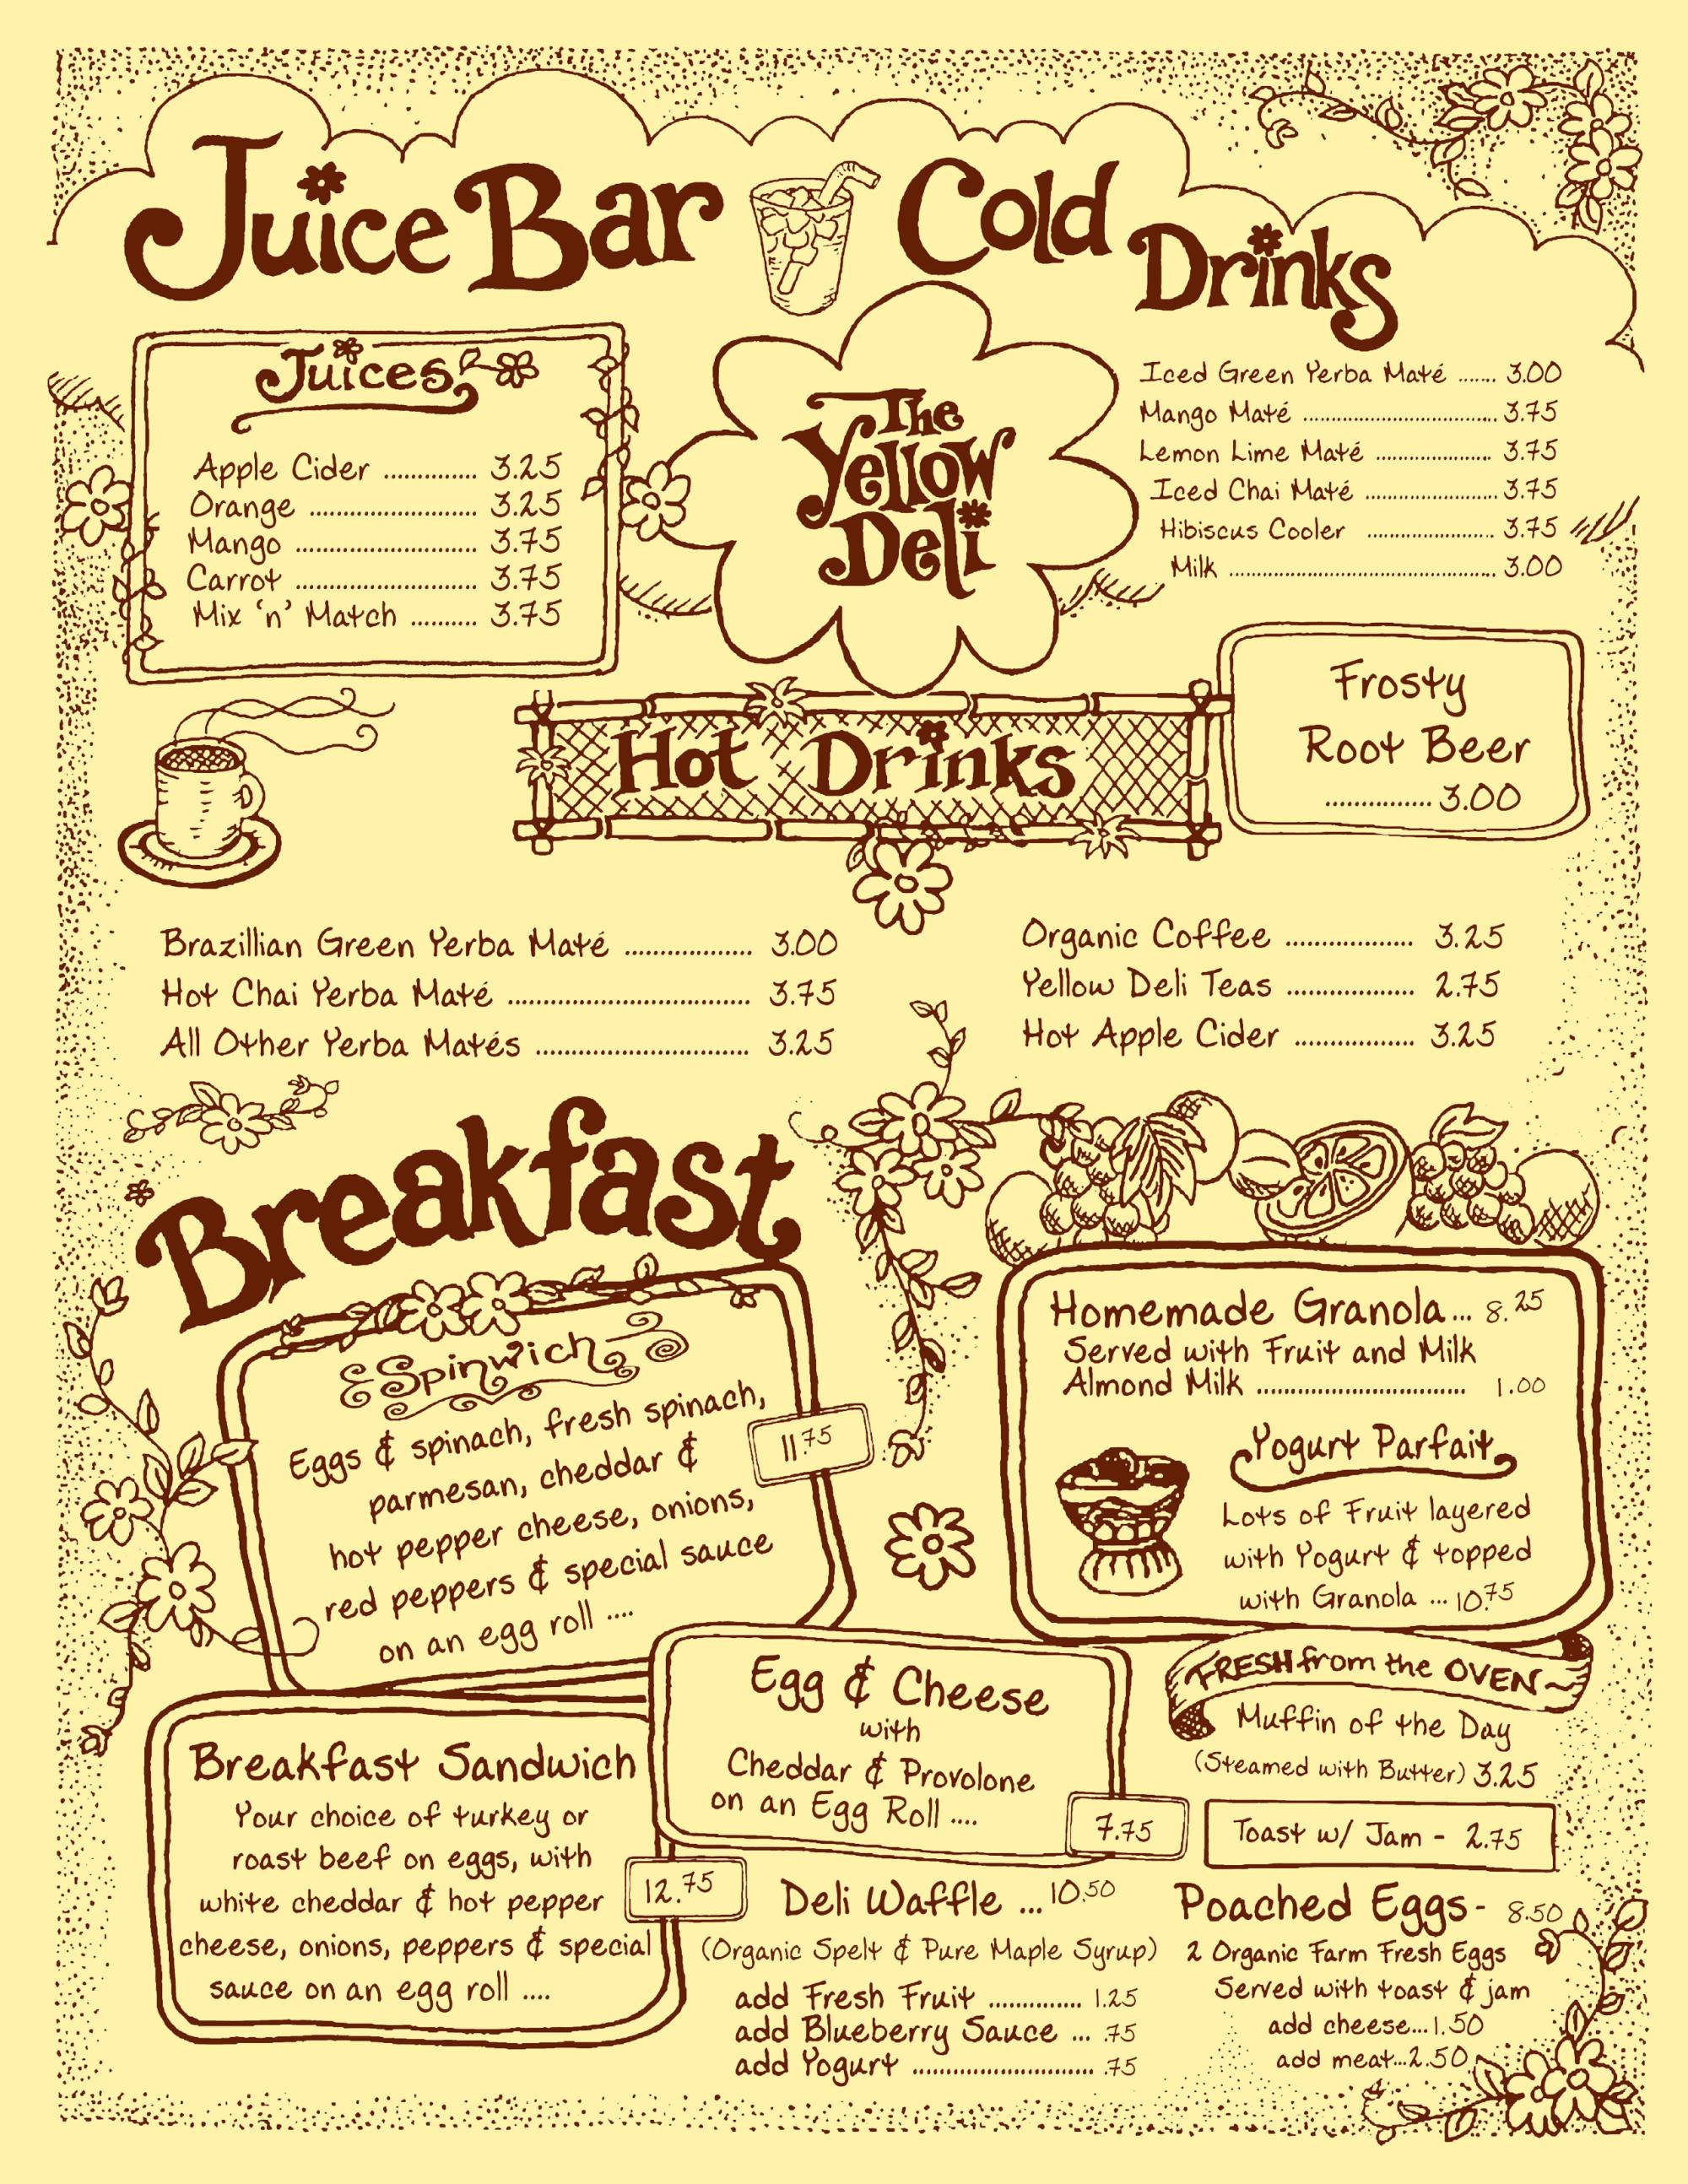 Juice Bar
Cold
Drinks
Juices
Apple Cider ............. 3.25
Orange ........................ 3.25
Mango .......................... 3.75
Carrot .......................... 3.75
Mix 'n' Match .......... 3.75
The
Yellow
Deli
Iced Green Yerba Maté ....... 3.00
Mango Maté .................................... 3.75
Lemon Lime Maté ...................... 3.75
Iced Chai Maté ......................... 3.75
Hibiscus Cooler ........................ 3.75
Milk .................................................. 3.00
Frosty
Root Beer
............... 3.00
Hot Drinks
Brazillian Green Yerba Maté ................... 3.00
Hot Chai Yerba Maté .................................... 3.75
All Other Yerba Matés ............................... 3.25
Organic Coffee ................... 3.25
Yellow Deli Teas ................... 2.75
Hot Apple Cider .................. 3.25
Breakfast
Spinwich
Eggs & spinach, fresh spinach,
parmesan, cheddar &
hot pepper cheese, onions,
red peppers & special sauce
on an egg roll ....
11.75
Homemade Granola... 8.25
Served with Fruit and Milk
Almond Milk ................................ 1.00
Yogurt Parfait
Lots of Fruit layered
with Yogurt & topped
with Granola ... 10.75
Egg & Cheese
with
Cheddar & Provolone
on an Egg Roll ....
7.75
FRESH from the OVEN
Muffin of the Day
(Steamed with Butter) 3.25
Toast w/ Jam - 2.75
Breakfast Sandwich
Your choice of turkey or
roast beef on eggs, with
white cheddar & hot pepper
cheese, onions, peppers & special
sauce on an egg roll ....
12.75
Deli Waffle ... 10.50
(Organic Spelt & Pure Maple Syrup)
add Fresh Fruit .............. 1.25
add Blueberry Sauce ... .75
add Yogurt ........................... .75
Poached Eggs - 8.50
2 Organic Farm Fresh Eggs
Served with toast & jam
add cheese...1.50
add meat...2.50